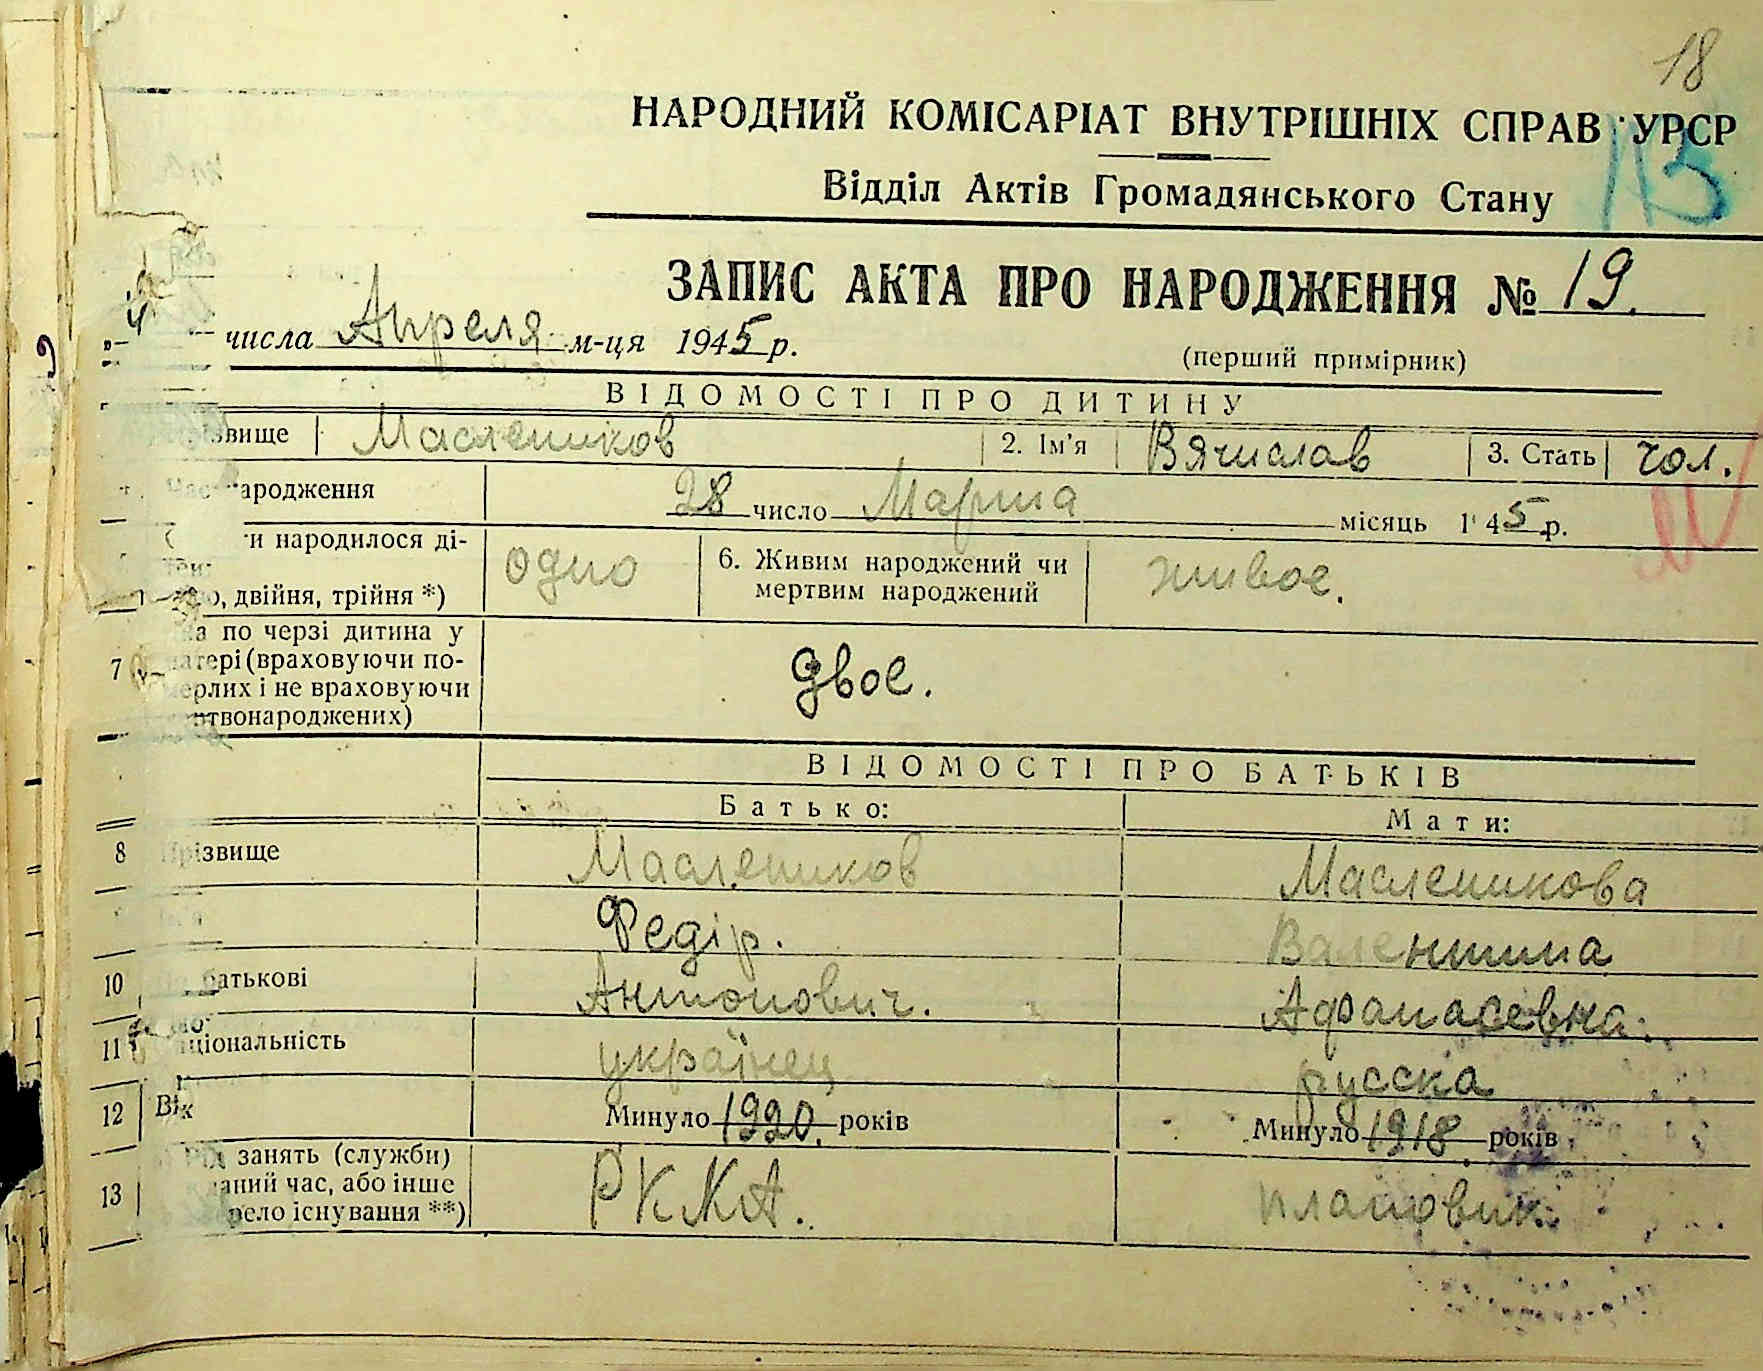 18
НАРОДНИЙ КОМІСАРІАТ ВНУТРІШНІХ СПРАВ УРСР
113
Відділ Актів Громадянського Стану
ЗАПИС АКТА ПРО НАРОДЖЕННЯ № 19.
числа Апреля м-ця 1945 р.
(перший примірник)
ВІДОМОСТІ ПРО ДИТИНУ
звище Маслеников 2. Ім'я Вячислав 3. Стать чол.
ародження 28 число Марта місяць 1 45 р.
ти народилося ді-
о, двійня, трійня *) одно 6. Живим народжений чи мертвим народжений живое.
7 на по черзі дитина у
матері (враховуючи по-
мерлих і не враховуючи
ртвонароджених) двое.
ВІДОМОСТІ ПРО БАТЬКІВ
Батько: Мати:
8 Прізвище Маслеников Масленикова
Федір. Валентина
10 По батькові Антонович. Афанасевна.
11 ціональність українец русска
12 Вік Минуло 1920. років Минуло 1918. років
занять (службы)
13 даний час, або інше
рело існування **) РККА. плановик.